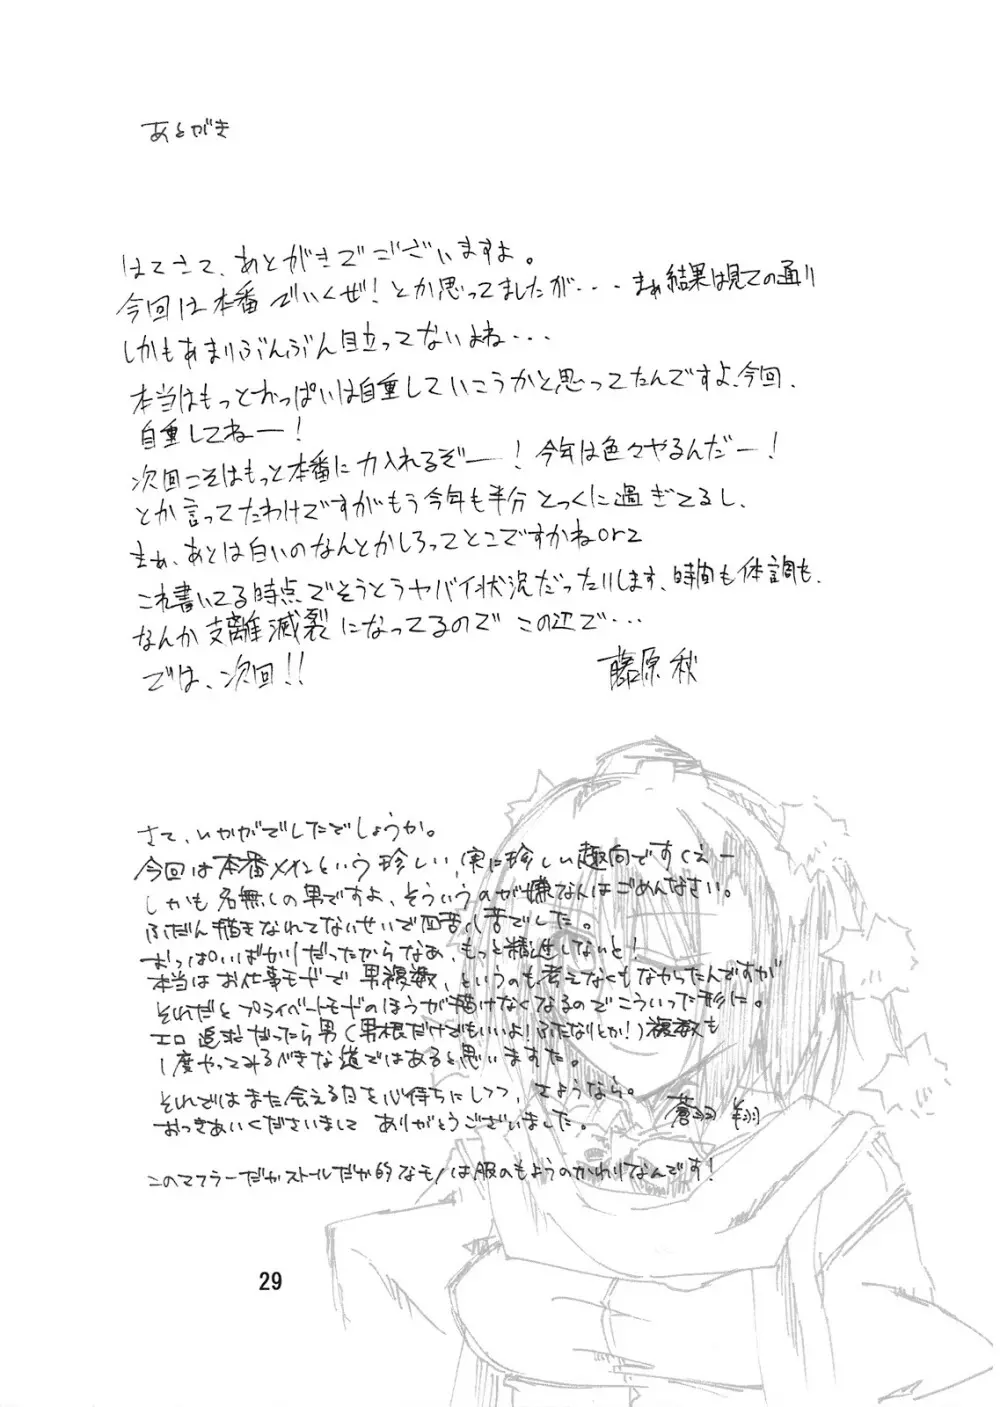 あとがき
はてさて、あとがきでございますよ。
今回は本番でいくぜ!とか思ってましたが・・・まぁ結果は見ての通り
しかもあまりぶんぶん目立ってないよね・・・
本当はもっとおっぱいは自重していこうかと思ってたんですよ、今回、
自重してねー!
次回こそはもっと本番に力入れるぞー!今年は色々やるんだー!
とか言ってたわけですがもう今年も半分とっくに過ぎてるし、
まぁ、あとは白いのなんとかしろってとこですかねorz
これ書いてる時点でそうとうヤバイ状況だったりします、時間も体調も、
なんか支離滅裂になってるのでこの辺で・・・
では、次回!!
藤原 秋
さて、いかがでしたでしょうか。
今回は本番メインという珍しい、実に珍しい趣向ですくえー
しかも名無しの男ですよ、そういうのが嫌な人はごめんなさい。
ふだん描きなれてないせいで四苦八苦でした。
おっぱいばかりだったからなぁ、もっと精進しないと!
本当はお仕事モードで男複数、というのも考えなくもなかったんですが
それだとプライベートモードのほうが描けなくなるのでこういった形に。
エロ追求だったら男(男根だけでもいいよ!ふたなりとか!)複数も
1度やってみるべきな道ではあると思いますた。
それではまた会える日を心待ちにしつつ、さようなら。
おつきあいくださいまして ありがとうございました。
蒼羽 翔
このマフラーだかストールだか的なモノは服のもようのかわりなんです!
29